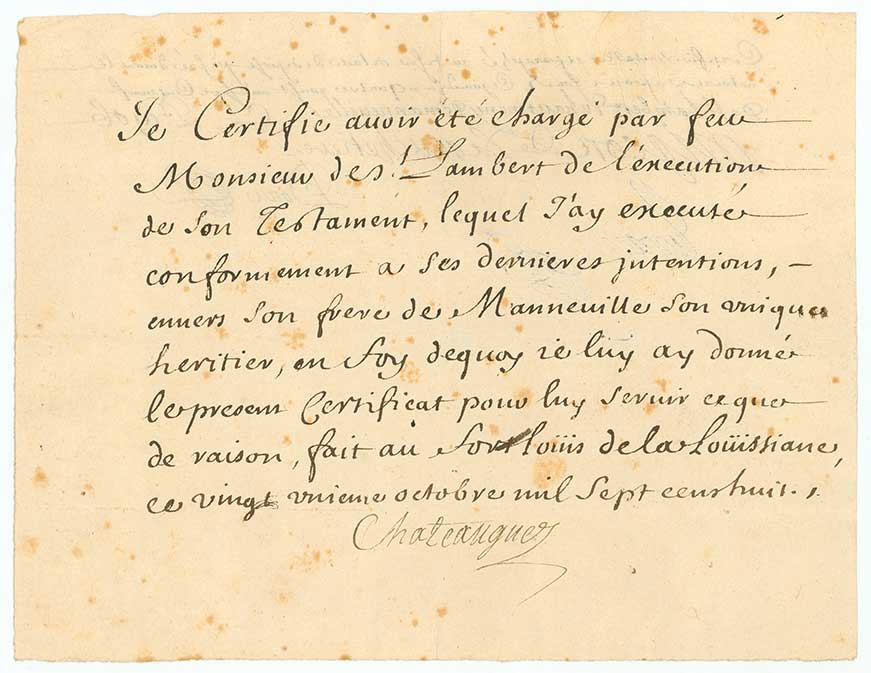 Je Certifie auoir été chargé par feu
Monsieur de St Lambert de l'éxecution
de son Testament, lequel J'ay executé
conformement a ses dernieres jntentions, –
enuers son frere de Manneuille son vnique
heritier, en foy dequoy ie luy ay donné
le present Certificat pour luy seruir ceque
de raison, fait au Fort loüis de la Loüissiane,
ce vingt vnieme octobre mil sept cens huit.,
Chateauguey